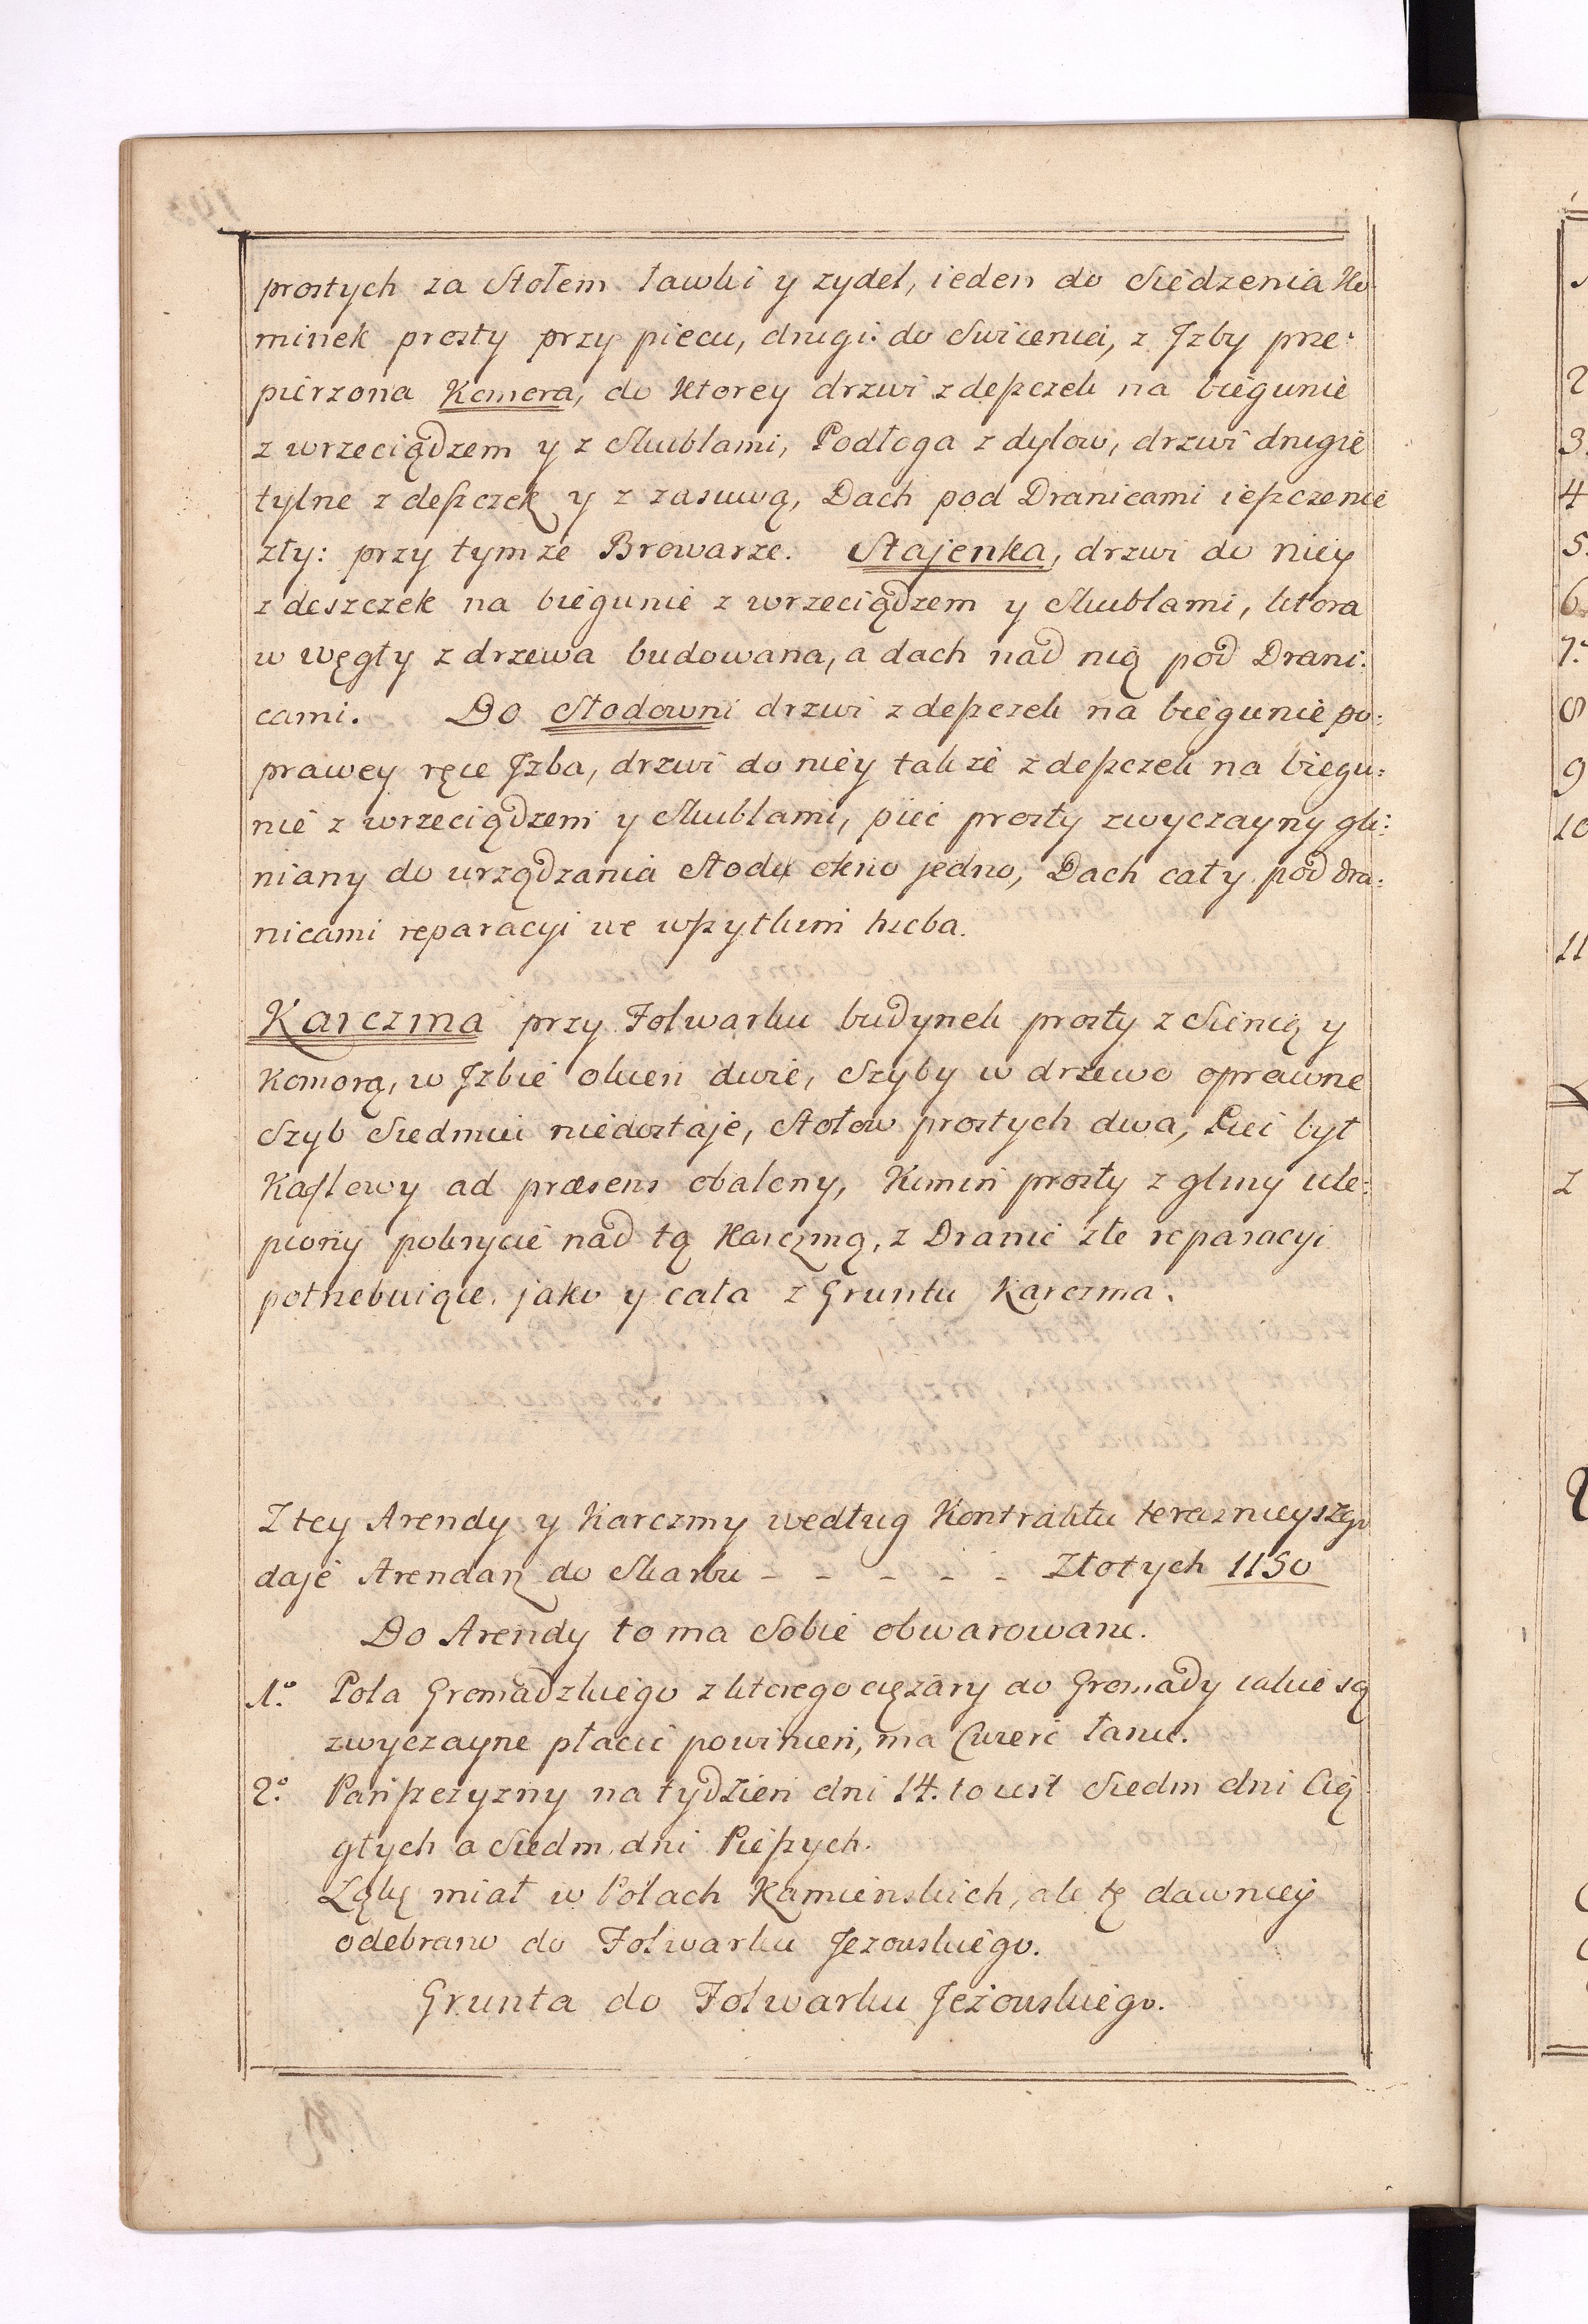 prostych za Stołem ławki y zydel, ieden do Siedzenia Ko
minek prosty przy piecu, drugi: do Swiecenia, z Jzby prze:
pierzona Komora, do Ktorey drzwi z deszczek na biegunie
z wrzeciądzem y z Skublami, Podłoga z dylow, drzwi drugie
tylne z deszczek y z zasuwą, Dach pod Dranicami ieszcze nie
zły: przy tymze Browarze. Stajenka, drzwi do niey
z deszczek na biegunie z wrzeciądzem y Skublami, ktora
w węgły z drzewa budowana, a dach nad nią pod Drani:
cami. Do Słodowni drzwi z deszczek na biegunie po:
prawey ręce Jzba, drzwi do niey takze z deszczek na biegu:
nie z wrzeciądzem y Skublami, piec prosty zwyczayny gli:
niany do urządzania Słodu okno jedno, Dach cały pod dra:
nicami reparacyi we wszytkim trzeba.
Karczma przy Folwarku budynek prosty z Sienią y
Komorą, w Jzbie okien dwie, Szyby w drzewo oprawne
Szyb Siedmii niedostaje, Stołow prostych dwa, Piec był
Kaflowy ad præsens obalony, Komin prosty z gliny ule:
piony pokrycie nad tą Karczmą, z Dranic złe reparacyi
potrzebuiące, jako y cała z Gruntu Karczma.
Z tey Arendy y Karczmy według Kontraktu teraznieyszego
daje Arendarz do Skarbu - - - - - Złotych 1150
Do Arendy to ma Sobie obwarowane.
1.o Pola Gromadzkiego z ktorego ciężary do Gromady iakie są
zwyczayne płacić powinien, ma Cwierć łanu.
2.o Pańszczyzny na tydzień dni 14. to iest Siedm dni Cią
głych a Siedm dni Pieszych.
Łąkę miał w Polach Kamieńskich, ale tę dawniey
odebrano do Folwarku Jezowskiego.
Grunta do Folwarku Jeżowskiego.